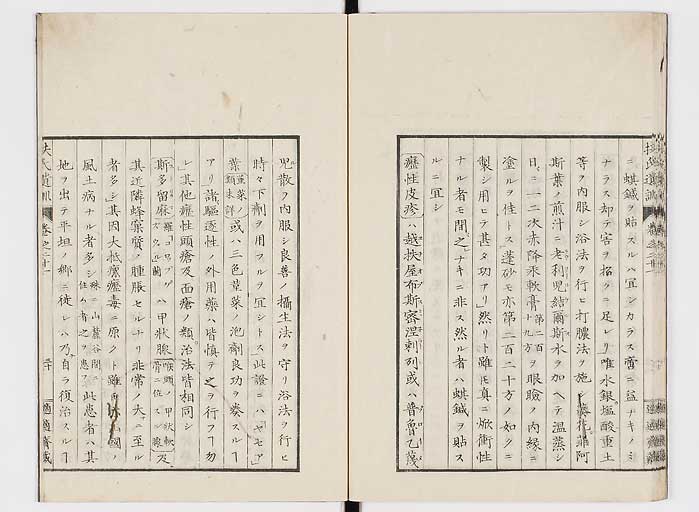 ニ蜞鍼ヲ貼スルハ宜シカラス啻ニ益ナキノミ
ナラス却テ害ヲ招クニ足レリ唯水銀塩酸重土
等ヲ内服シ浴法ヲ行ヒ打膿法ヲ施シ菲阿
斯葉ノ煎汁ニ老利児結爾斯水ヲ加ヘテ温蒸シ
日ニ一二次赤降汞軟膏第二百十九方ヲ眼瞼ノ内縁ニ
塗ルヲ佳トス蓬砂モ亦第二百二十方ノ如クニ
製シ用ヒテ甚タ功アリ然リト雖モ真ニ焮衝性
ナル者モ間之ナキニ非ス然ル者ハ蜞鍼ヲ貼ス
ルニ宜シ
癧性皮疹ハ越扶屋布斯密涅剌列或ハ普魯乙蔑
児散ヲ内服シ良善ノ摂生法ヲ守リ浴法ヲ行ヒ
時々下剤ヲ用フルヲ宜シトス此證ニハヤセア
葉或ハ三色菫菜ノ泡剤良功ヲ奏スルヿ
アリ諸駆逐性ノ外用薬ハ皆慎テ之ヲ行フヿ勿
レ其他癧性頭瘡及面瘡ノ類治法皆相同シ
斯多留麻ハ甲状腺及
其近隣蜂窠質ノ腫脹セルナリ非常ノ大ニ至ル
者多シ其因大抵瘰癧毒ニ原クト雖モ国ノ
風土病ナル者多シ殊ニ山麓谷間ニ住ム者之ヲ患フ此患者ハ其
地ヲ出テ平坦ノ郷ニ徙レハ乃自ラ復治スルヿ
扶氏遺訓 巻之二十一